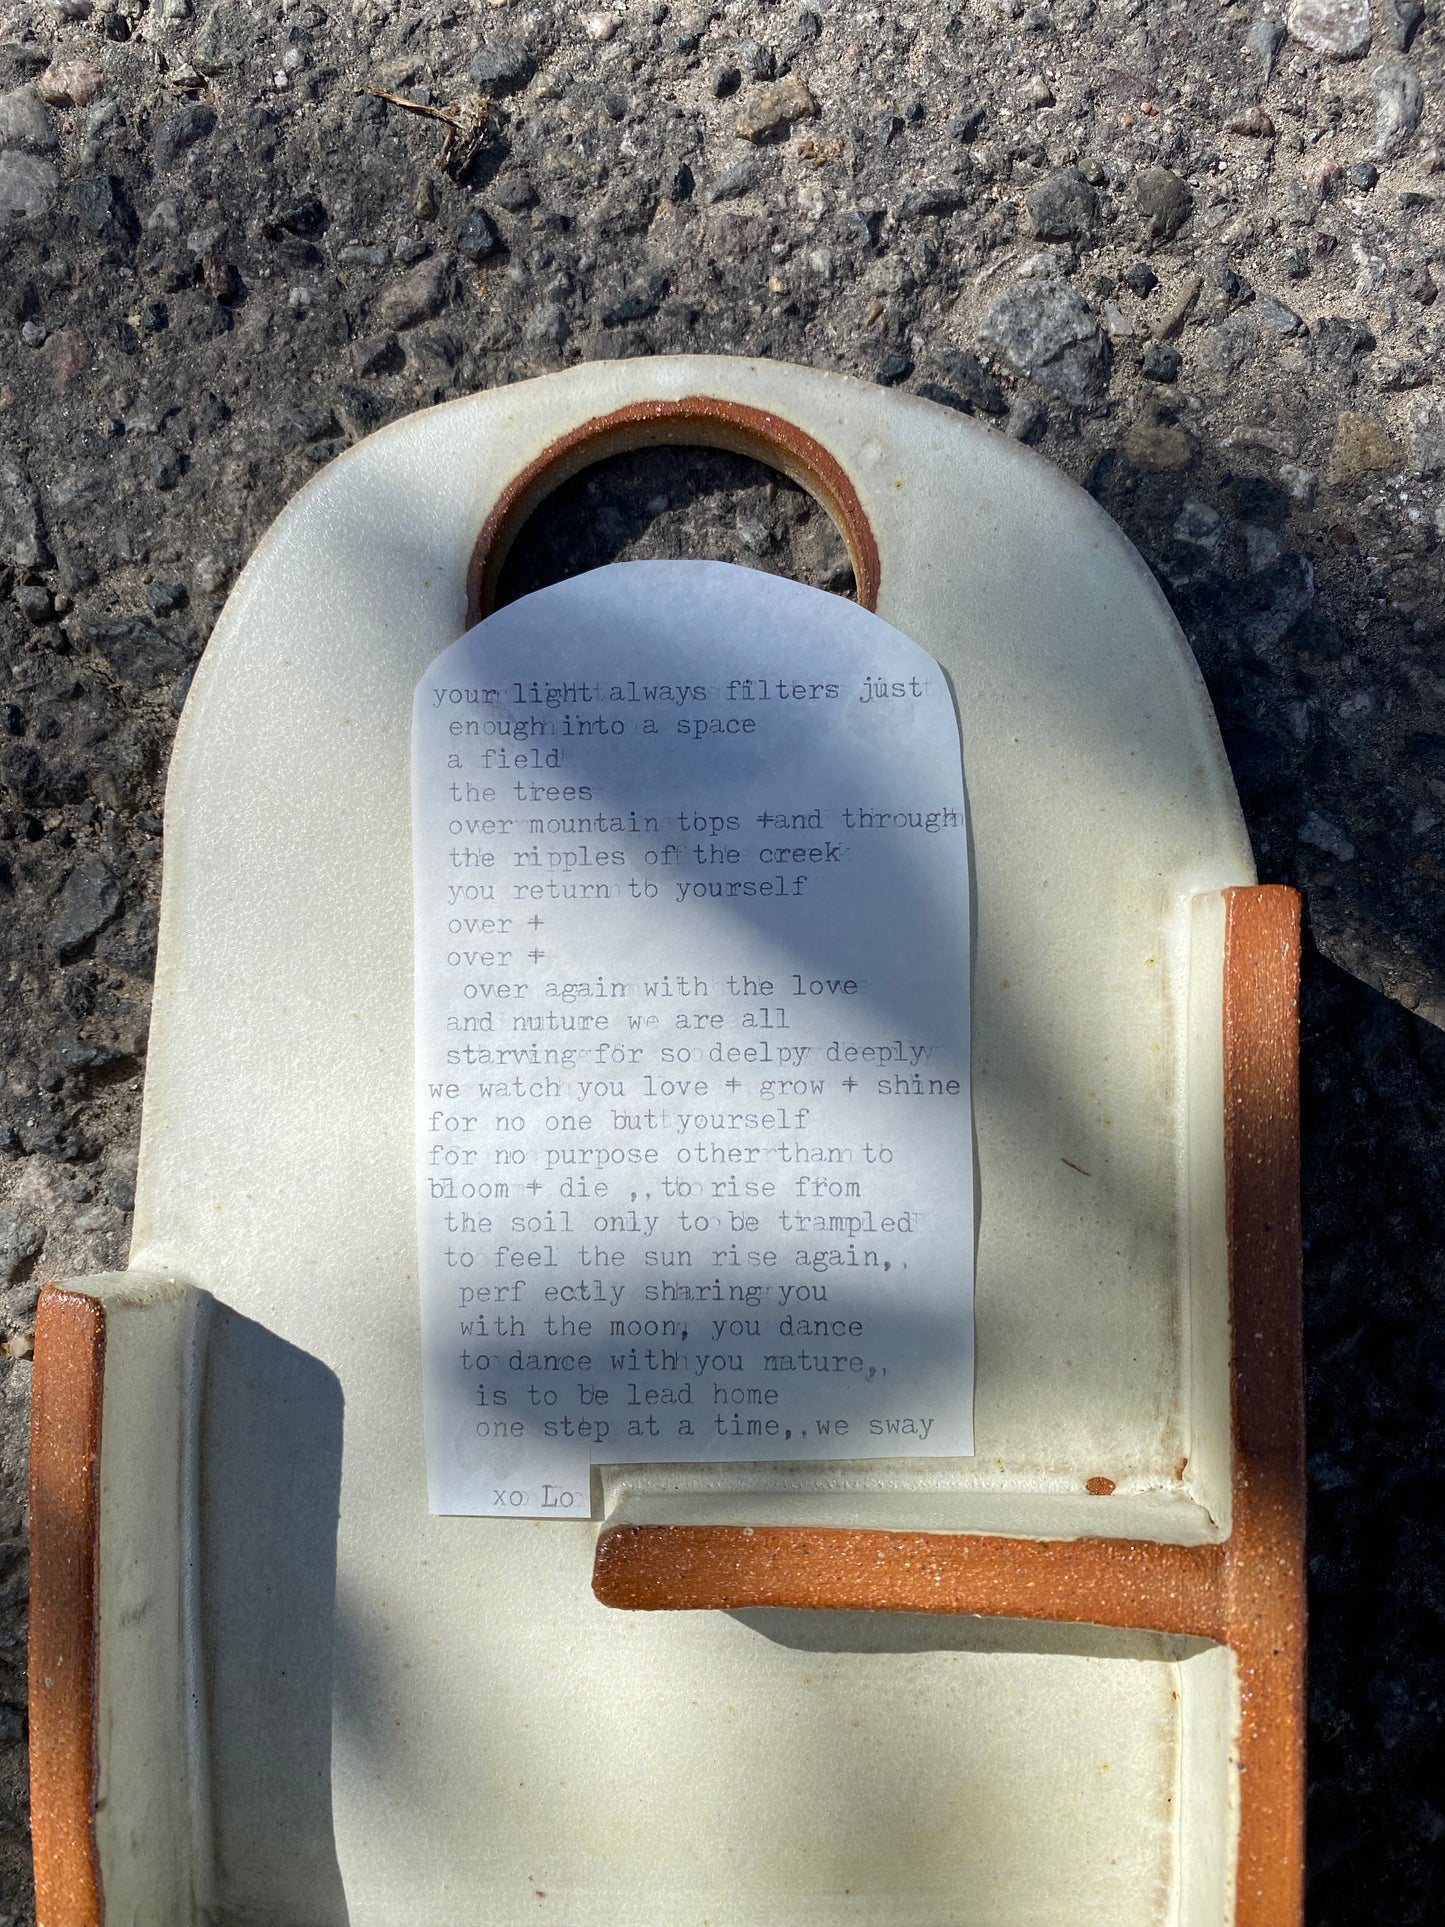 your light always filters just
enough into a space
a field
the trees
over mountain tops +and through
the ripples of the creek
you return to yourself
over +
over +
over again with the love
and nuture we are all
starving for so deelpy deeply
we watch you love + grow + shine
for no one but yourself
for no purpose other than to
bloom + die ,, to rise from
the soil only to be trampled
to feel the sun rise again,,
perf ectly sharing you
with the moon, you dance
to dance with you nature,,
is to be lead home
one step at a time,, we sway
xo Lo